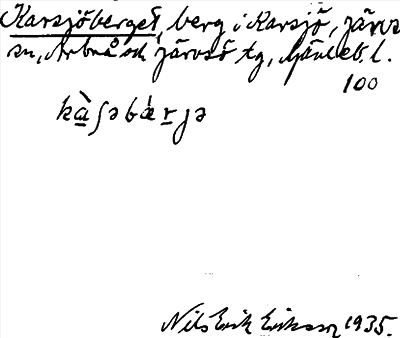 Karsjöberget, berg i Karsjö, järvs
sn, Arbrå och järvsö tg, Gävleb. l.
100
kàʃəbǽrjə
Nils Erik Eriksson 1935.